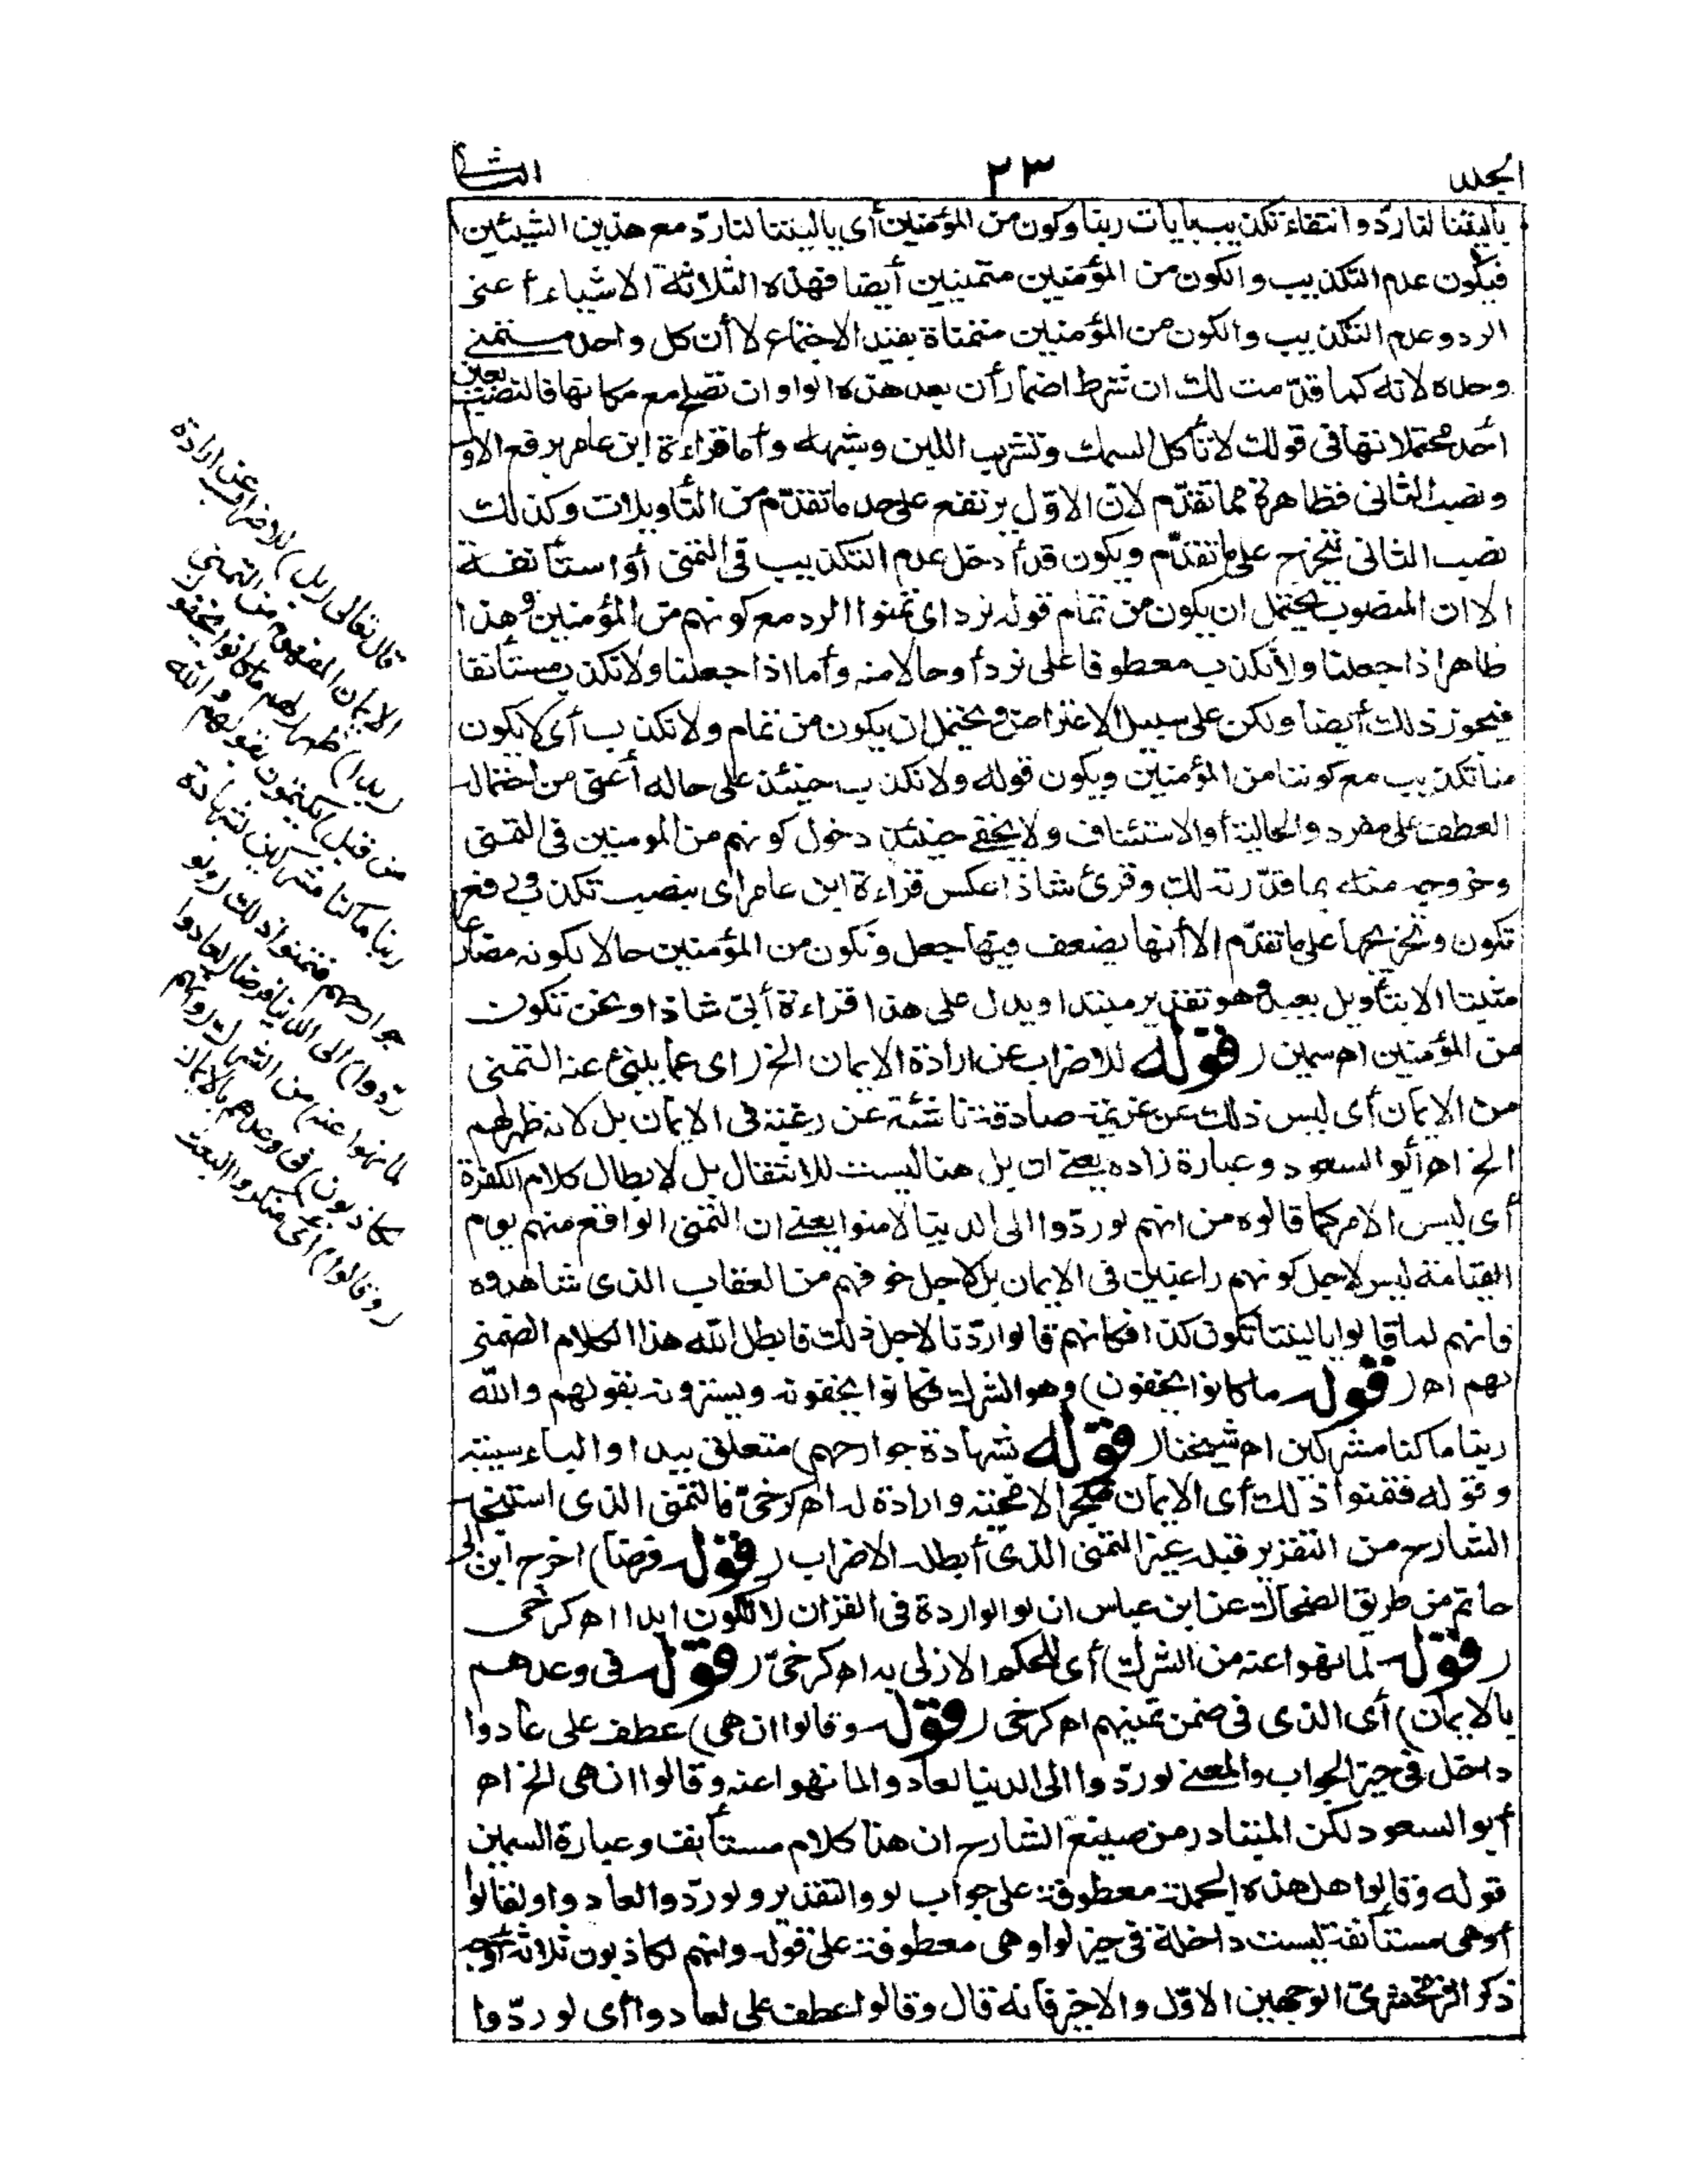 الجلد
٢٣
الثانى
ياليتنا لنا ردّ وانتفاء تكذيب بآيات ربنا وكون من المؤمنين أى ياليتنا لنا ردّ مع هذين الشيئين
فيكون عدم التكذيب والكون من المؤمنين متمنيين أيضا فهذه الثلاثة الاشياء أعنى
الرد وعدم التكذيب والكون من المؤمنين متمناة بقيد الاجتماع لا أن كل واحد متمنى
وحده لانه كما قدّمت لك ان شرط اضمار أن بعد هذه الواو ان تصلح مع مكانها فالنصب يعين
أحد محتملاتها فى قولك لا تأكل السمك وتشرب اللبن وشبهه وأما قراءة ابن عامر برفع الاول
ونصب الثانى فظاهرة مما تقدّم لانّ الاوّل يرتفع على حد ما تقدّم من التأويلات وكذلك
نصب الثانى يتخرّج على ما تقدّم ويكون قد أدخل عدم التكذيب فى التمنى أو استأنفه
الا ان المنصوب يحتمل ان يكون من تمام قوله نرد اى تمنوا الرد مع كونهم من المؤمنين وهذا
ظاهر اذا جعلنا ولا نكذب معطوفا على نرد أو حالا منه وأما اذا جعلنا ولا نكذب مستأنفا
فيجوز ذلك أيضا ولكن على سبيل الاعتراض ويحتمل ان يكون من تمام ولا نكذب أى لا يكون
منا تكذيب مع كوننا من المؤمنين ويكون قوله ولا نكذب حينئذ على حاله أعنى من احتماله
العطف على مفرد والحالية أو الاستئناف ولا يخفى حينئذ دخول كونهم من المومنين فى التمنى
وخروجه منه بما قدّرته لك وقرئ شاذا عكس قراءة ابن عامر اى بنصب نكذب ورفع
نكون وتخريجها على ما تقدّم الا أنها يضعف فيها جعل ونكون من المؤمنين حالا لكونه مضارعا
مثبتا الا بتأويل بعيد وهو تقدير مبتدا ويدل على هذا قراءة أبىّ شاذا ونحن نكون
من المؤمنين اه سمين (قوله للاضراب عن ارادة الايمان الخ) اى عما ينبئ عنه التمنى
من الايمان أى ليس ذلك عن عزيمة صادقة ناشئة عن رغبة فى الايمان بل لانه ظهر لهم
الخ اه أبو السعود وعبارة زاده يعنى ان بل هنا ليست للانتقال بل لابطال كلام الكفرة
أى ليس الامر كما قالوه من انهم لو ردّوا الى الدنيا لآمنوا يعنى ان التمنى الواقع منهم يوم
القيامة ليس لاجل كونهم راغبين فى الايمان بل لاجل خوفهم من العقاب الذى شاهدوه
فانهم لما قالوا ياليتنا نكون كذا فكانهم قالوا ردّنا لاجل ذلك فابطل الله هذا الكلام الضمنى
لهم اه (قوله ما كانوا يخفون) وهو الشرك فكانوا يخفونه ويسترونه بقولهم والله
ربنا ما كنا مشركين اه شيخنا (قوله شهادة جوارحهم) متعلق ببدا والباء سببية
وقوله فتمنوا ذلك أى الايمان ضجرا لا محبة وارادة له اه كرخىّ فالتمنى الذى استنتجه
الشارح من التقرير قبله غير التمنى الذى أبطله الاضراب (قوله فرضا) اخرج ابن أبى
حاتم من طريق الضحاك عن ابن عباس ان لو الواردة فى القرآن لا تكون ابدا اه كرخى
(قوله لما نهوا عنه من الشرك) أى للحكم الازلى به اه كرخىّ (قوله فى وعدهم
بالايمان) أى الذى فى ضمن تمنيهم اه كرخى (قوله وقالوا ان هى) عطف على عادوا
داخل فى حيز الجواب والمعنى لو ردّوا الى الدنيا لعادوا لما نهوا عنه وقالوا ان هى الخ اه
أبو السعود لكن المتبادر من صنيع الشارح ان هذا كلام مستأنف وعبارة السمين
قوله وقالوا هل هذه الجملة معطوفة على جواب لو والتقدير ولو ردّوا لعادوا ولقالوا
أو هى مستأنفة ليست داخلة فى حيز لو أو هى معطوفة على قوله وانهم لكاذبون ثلاثة أوجه
ذكر الزمخشرىّ الوجهين الاوّل والاخير فانه قال وقالوا عطف على لعادوا أى لو ردّوا
قال تعالى (بل) للاضراب عن ارادة
الايمان المفهوم من التمنى
(بدا) ظهر (لهم ما كانوا يخفون
من قبل) يكتمون بقولهم والله
ربنا ما كنا مشركين بشهادة
جوارحهم فتمنوا ذلك (ولو
ردوا) الى الدنيا فرضا (لعادوا
لما نهوا عنه) من الشرك (وانهم
لكاذبون) فى وعدهم بالايمان
(وقالوا) أى منكرو البعث